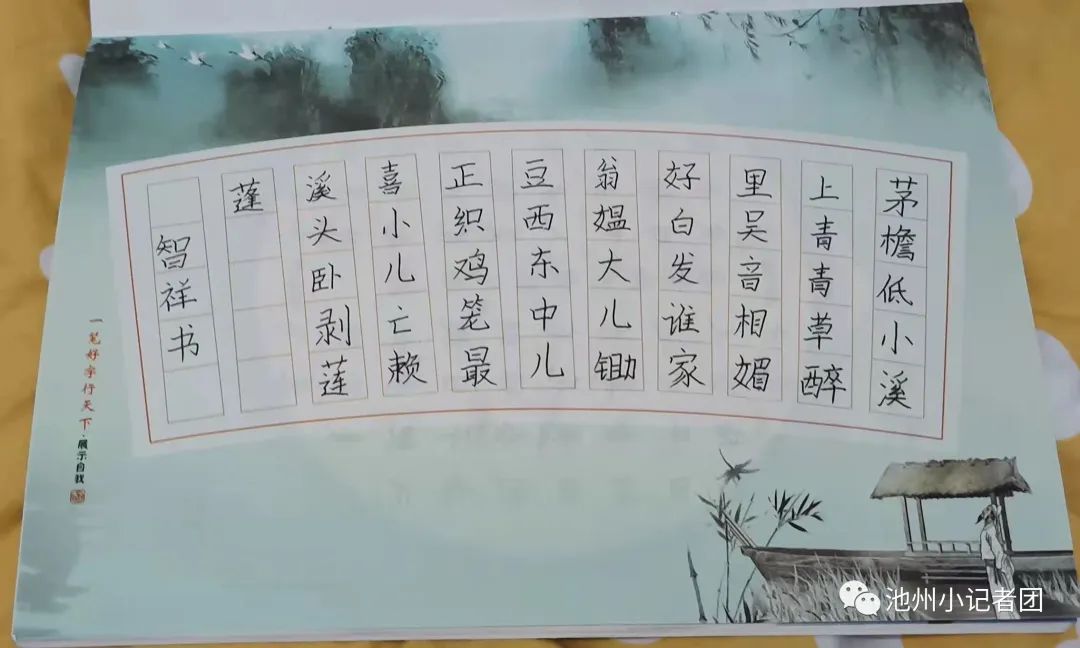 茅檐低小溪
上青青草醉
里吴音相媚
好白发谁家
翁媪大儿锄
豆西东中儿
正织鸡笼最
喜小儿亡赖
溪头卧剥莲
蓬
智祥书
一笔好字行天下·展示自我
池州小记者团